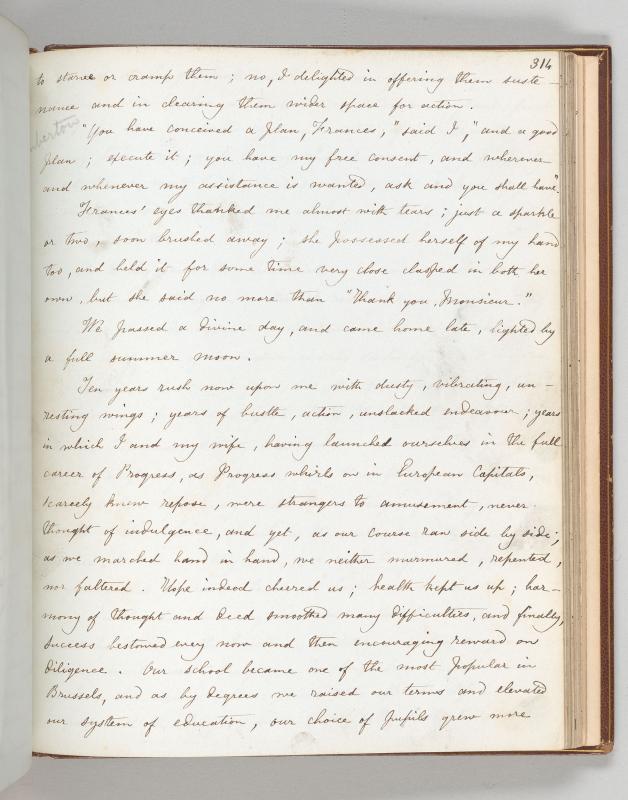 314
to starve or cramp them ; no, I delighted in offering them suste-
nance and in clearing them wider space for action .
"You have conceived a plan, Frances," said I ," and a good
plan ; execute it ; you have my free consent , and wherever
and whenever my assistance is wanted , ask and you shall have".
Frances' eyes thanked me almost with tears ; just a sparkle
or two , soon brushed away ; she possessed herself of my hand
too, and held it for some time very close clasped in both her
own , but she said no more than "Thank you , Monsieur."
We passed a divine day, and came home late , lighted by
a full summer moon .
Ten years rush now upon me with dusty , vibrating, un-
resting wings ; years of bustle , action , unslacked endeavour ; years
in which I and my wife , having launched ourselves in the full
career of Progress, as Progress whirls on in European Capitals,
scarcely knew repose , were strangers to amusement , never
thought of indulgence, and yet , as our course ran side by side ,
as we marched hand in hand, we neither murmured , repented ,
nor faltered . Hope indeed cheered us ; health kept us up ; har-
mony of thought and deed smoothed many difficulties, and finally,
success bestowed every now and then encouraging reward on
diligence . Our school became one of the most popular in
Brussels, and as by degrees we raised our terms and elevated
our system of education , our choice of pupils grew more